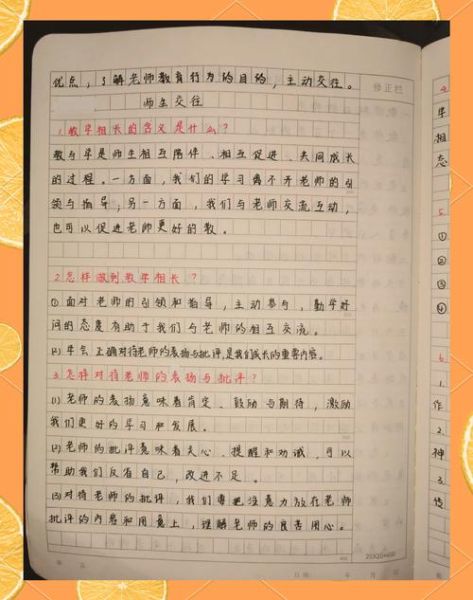 优点，了解老师教育行为的目的，主动交往。
修正栏
师生交往
1.教学相长的含义是什么？
教与学是师生相互陪伴、相互促进、共同成长
的过程。一方面，我们的学习离不开老师的引
领与指导；另一方面，我们与老师交流互动，
也可以促进老师更好的教。
2.怎样做到教学相长？
①面对老师的引领和指导，主动参与，勤学好
问的态度有助于我们与老师的相互交流。
(2)学会正确对待老师的表扬与批评是我们成长的重要内容。
3.怎样对待老师的表扬与批评？
(1)老师的表扬意味着肯定、鼓励与期待，激励
我们更好的学习和发展。
(2)老师的批评意味着关心、提醒和劝诫，可以
帮助我们反省自己，改进不足。
(3)对待老师的批评，我们要把注意力放在老师
批评的内容和用意上，理解老师的良苦用心。
学
相
态
5
①
②
③
④
6
1.
作
2.
神
3.
传